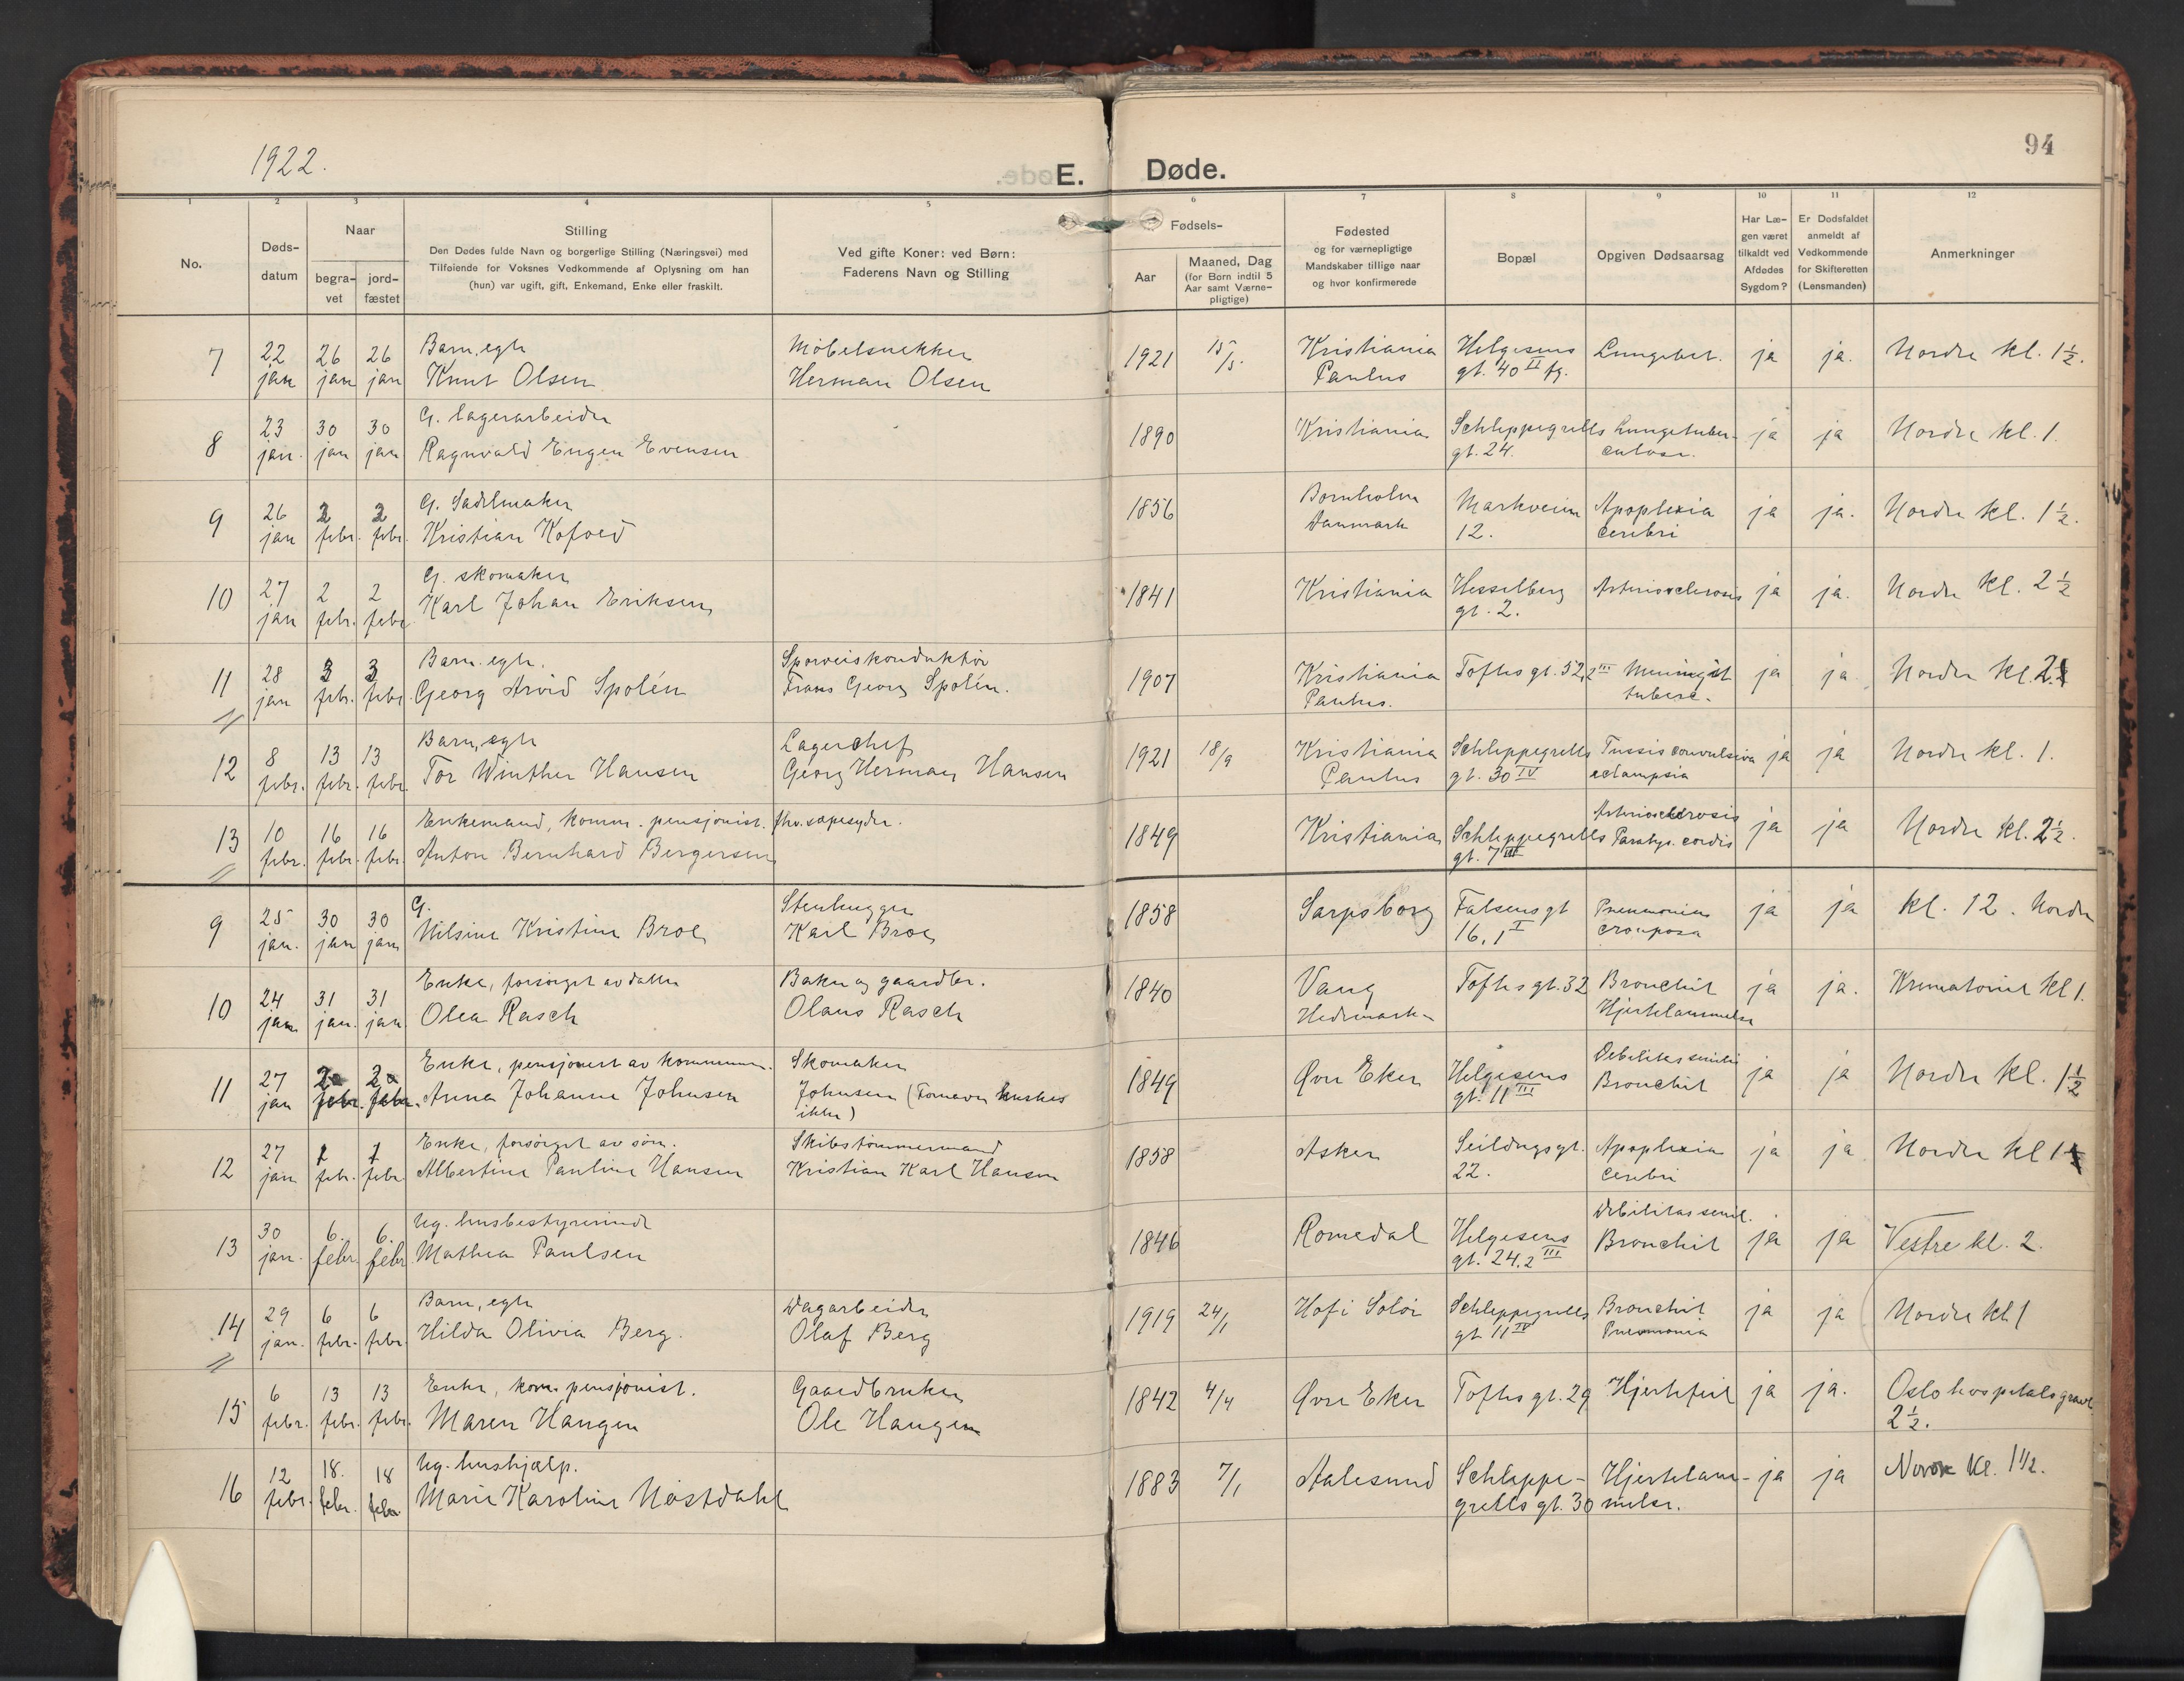 1922.
E. Døde.
94
1 2 3 4 5 6 7 8 9 10 11 12
No.
Døds-
datum
Naar
begra-
vet
jord-
fæstet
Stilling
Den Dødes fulde Navn og borgerlige Stilling (Næringsvei) med
Tilføiende for Voksnes Vedkommende af Oplysning om han
(hun) var ugift, gift, Enkemand, Enke eller fraskilt.
Ved gifte Koner: ved Børn:
Faderens Navn og Stilling
Fødsels-
Aar
Maaned, Dag
(for Børn indtil 5
Aar samt Værne-
pligtige)
Fødested
og for værnepligtige
Mandskaber tillige naar
og hvor konfirmerede
Bopæl
Opgiven Dødsaarsag
Har Læ-
gen været
tilkaldt ved
Afdødes
Sygdom?
Er Dødsfaldet
anmeldt af
Vedkommende
for Skifteretten
(Lensmanden)
Anmerkninger
22 26 26 Barn, egte Møbelsnekker 15/5. Kristiania Helgesens
7 jan jan jan Knut Olsen Herman Olsen 1921 Paulus gt. 40 II fg. Lungebet. ja ja. Nordre kl. 1½.
23 30 30 G. lagerarbeider
8 jan. jan jan Ragnvald Eugen Evensen 1890 Kristiania Schleppegrells Lungetuber- ja ja Nordre kl. 1.
gt. 24. culose.
26 2 2 G. Sadelmaker Bornholm Markveien Apoplexia
9 jan febr. febr. Kristian Kofoed 1856 Danmark 12. cerebri ja ja. Nordre kl. 1½.
27 2 2 G. skomaker
10 jan febr. febr Karl Johan Eriksen 1841 Kristiania Hesselberg Arteriosclerosis ja ja. Nordre kl. 2½
gt. 2.
28 3 3 Barn. egte. Sporveiskonduktør
11 jan febr. febr. Georg Arvid Spolén Frans Georg Spolén. 1907 Kristiania Toftes gt. 52, 2 III Meningit ja ja Nordre kl. 2
Paulus. tuberc.
8 13 13 Barn, egte Lagerchef
12 febr. febr. febr. Tor Winther Hansen Georg Herman Hansen 1921 18/9 Kristiania Schleppegrells Tussis convulsiva ja ja Nordre kl. 1.
Paulus gt. 30 IV eclampsia
10 16 16 Enkemand, komm. pensjonist. fhv. sæpesyder. Arteriosclerosis
13 febr. febr. febr. Anton Bernhard Bergersen 1849 Kristiania Schleppegrells Paralys. cordis ja ja Nordre kl. 2½.
gt. 7 III
25 30 30 G. Stenhugger
9 jan. jan jan Nilsine Kristine Broe Karl Broe 1858 Sarpsborg Falsensgt Pneumonia ja ja kl. 12. Nordre
16, 1 I crouposa
24 31 31 Enke, forsørget av datter Baker og gaardbr.
10 jan jan. jan Olea Rasch Olaus Rasch 1840 Vang Toftes gt. 32 Bronchit ja ja. Krematoriet kl 1.
Hedemark- Hjertelammelse
27 2 2 Enke, pensjonert av kommunen. Skomaker Debilitas senilis
11 jan febr. febr. Anna Johanne Johnsen Johnsen (Fornavn huskes 1849 Øvre Eker Helgesens Bronchit ja ja Nordre kl. 1½
ikke) gt. 11 III
27 1 1 Enke, forsørget av søn. Skibstømmermand
12 jan febr. febr Albertine Pauline Hansen Kristian Karl Hansen 1858 Asker Seildugsgt. Apoplexia ja ja Nordre kl 1
22. cerebri
30 6. 6. Ug. husbestyrerinde Debilitas senil.
13 jan. febr. febr. Mathea Paulsen 1846 Romedal Helgesens Bronchit ja ja Vestre kl. 2.
gt. 24, 2 III
29 6 6 Barn, egte Dagarbeider
14 jan. febr. febr. Hilda Olivia Berg. Olaf Berg 1919 24/1 Hof i Solør Schleppegrells Bronchit ja ja Nordre kl 1
gt 11 IV Pneumonia
6 13 13 Enke, kom. pensjonist. Gaardbruker
15 febr. febr. febr. Maren Haugen Ole Haugen 1842 4/4 Øvre Eker Toftes gt. 29 Hjertefeil ja ja. Oslo hospitals gravl.
2½.
12 18. 18 Ug. hushjælp.
16 febr. febr. febr Marie Karoline Nøstdahl 1883 7/1 Aalesund Schleppe- Hjertelam- ja ja Nordre kl. 1½.
grells gt. 30 melse.